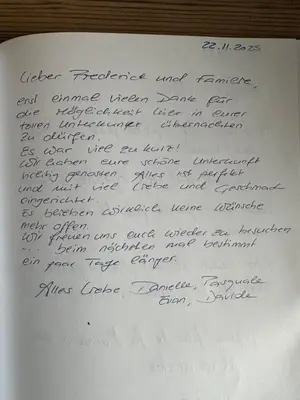 22.11.2025
Lieber Frederick und Familie,
erst einmal vielen Dank für
die Möglichkeit hier in eurer
tollen Unterkunft übernachten
zu dürfen.
Es war viel zu kurz!
Wir haben eure schöne Unterkunft
richtig genossen. Alles ist perfekt
und mit viel Liebe und Geschmack
eingerichtet.
Es blieben wirklich keine Wünsche
mehr offen.
Wir freuen uns euch wieder zu besuchen
... beim nächsten mal bestimmt
ein paar Tage länger.
Alles Liebe Danielle, Pasquale
Davide